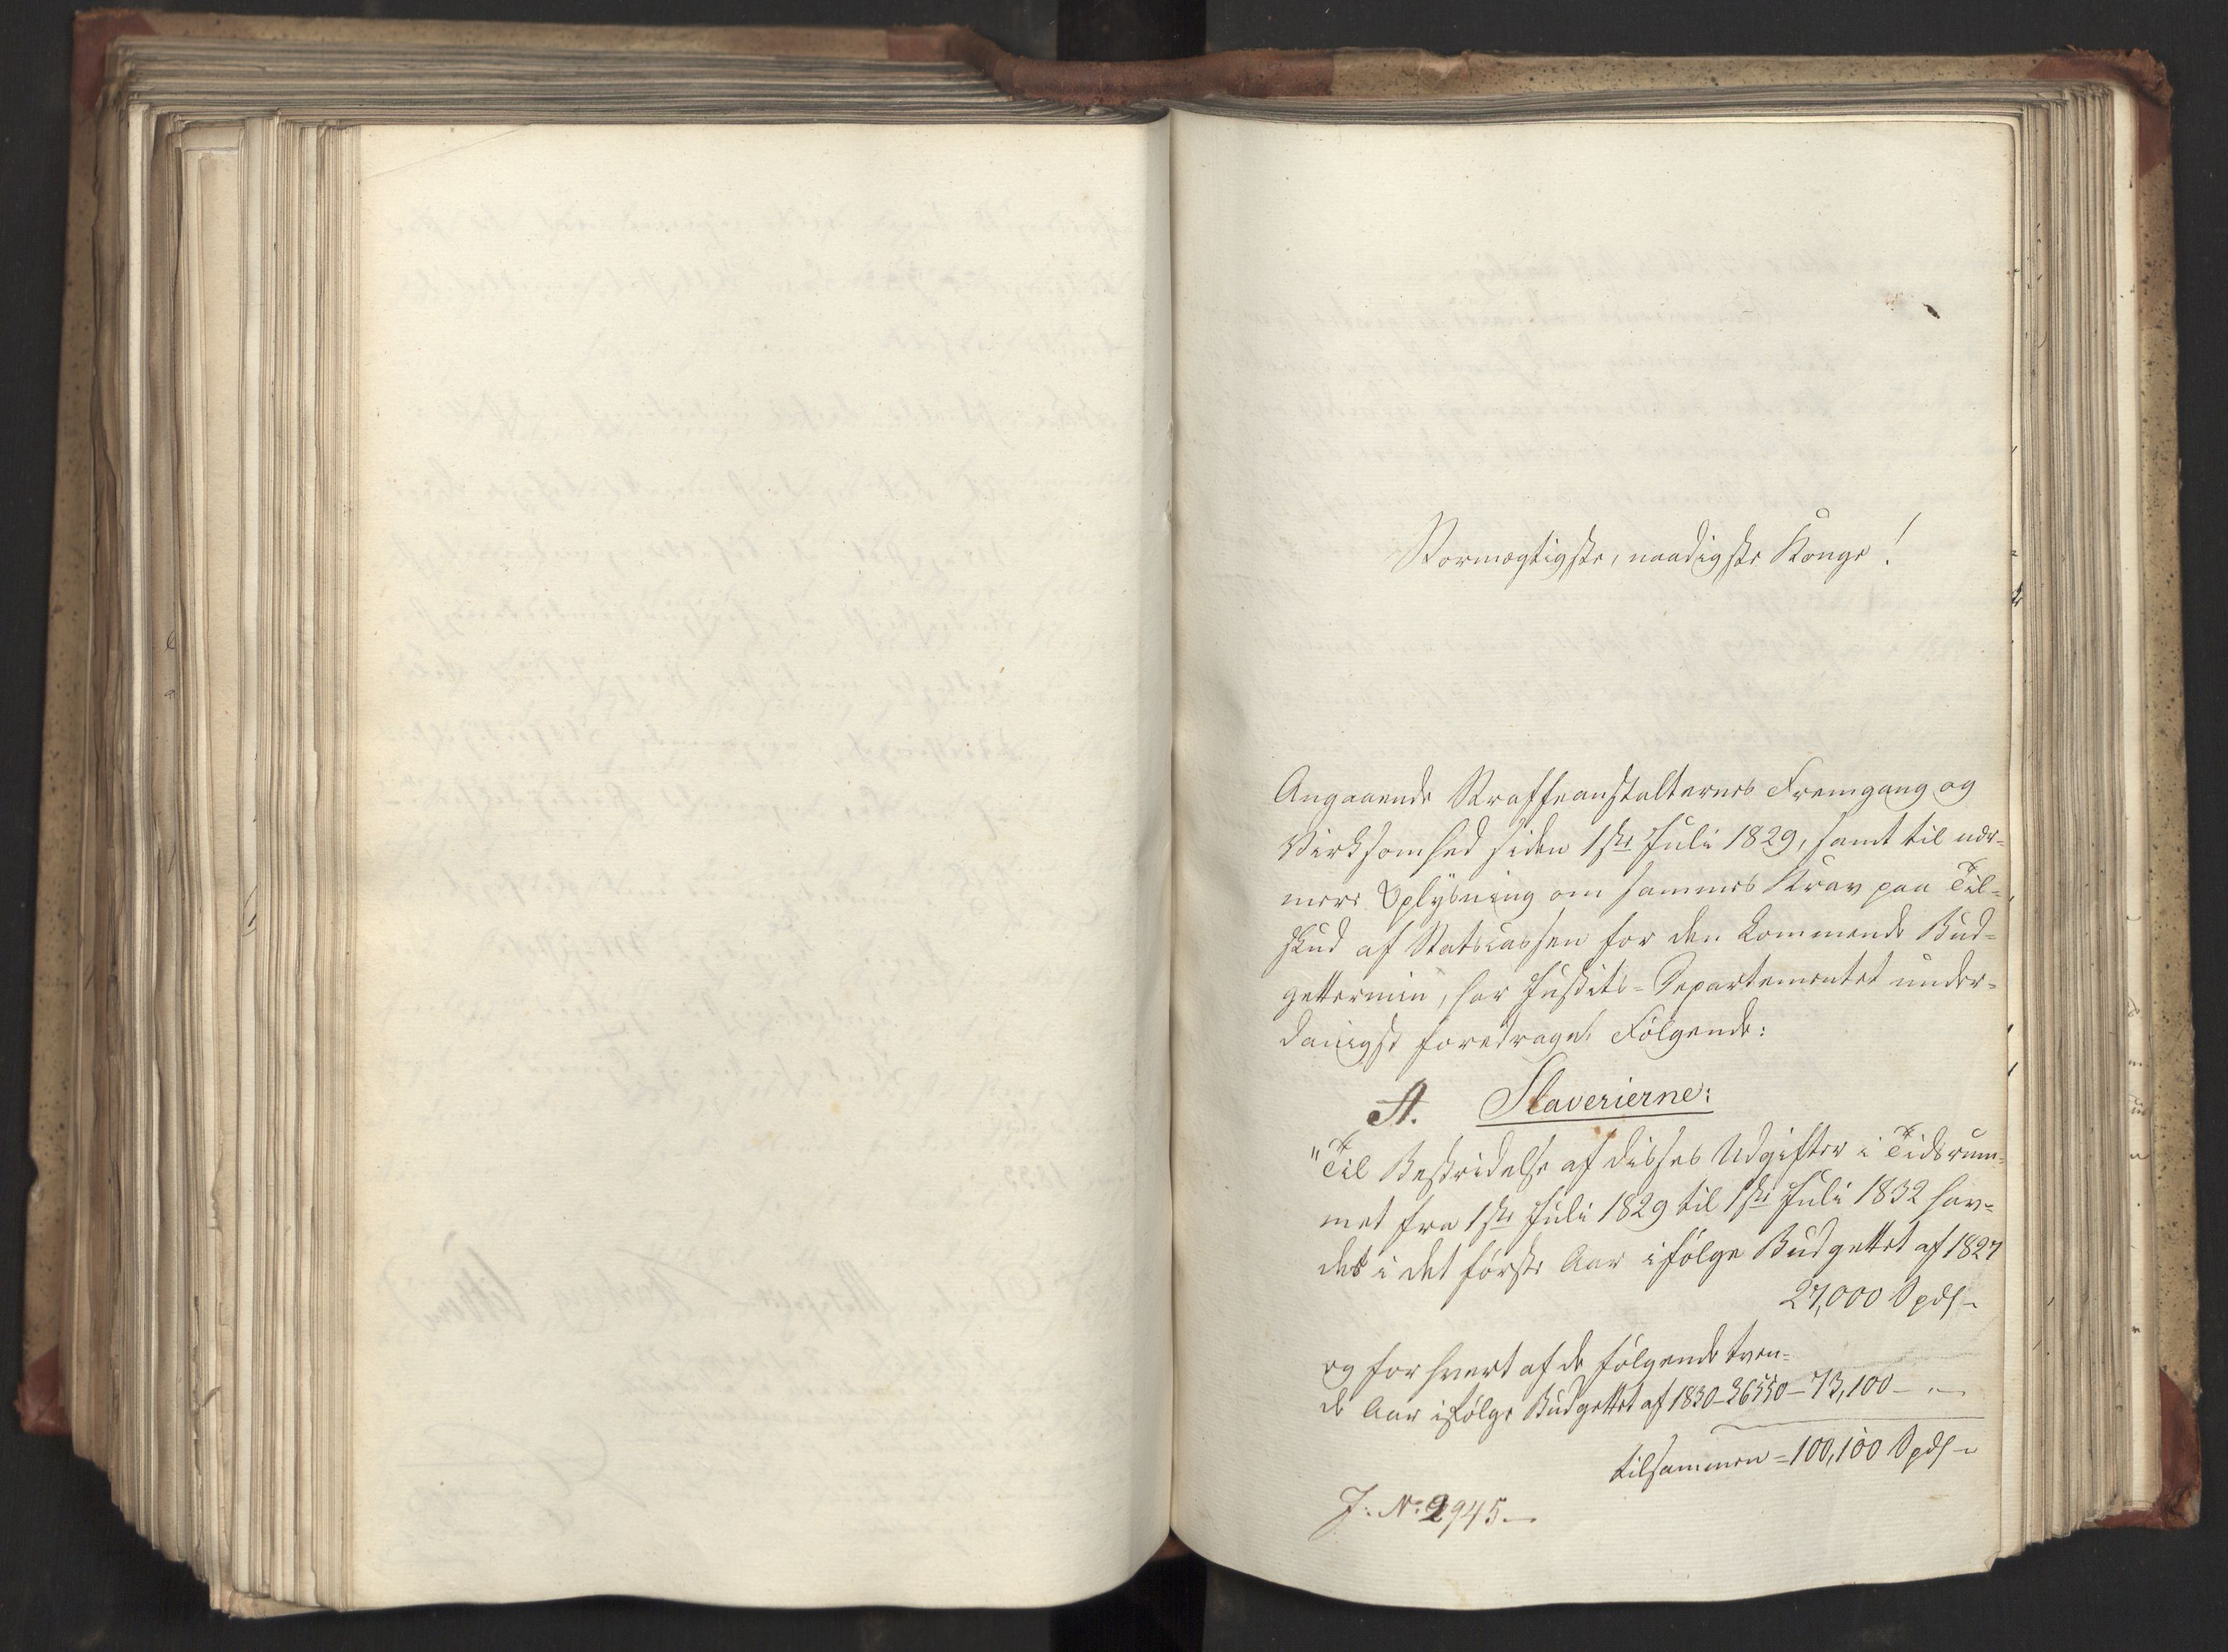 Stormægtigste, naadigste Konge!
Angaaende Straffeanstalternes Fremgang og
Virksomhed siden 1ste Juli 1829, samt til nær-
mere Oplysning om sammes Krav paa Til-
skud af Statscassen for den kommende Bud-
gettermin, har Justits-Departementet under-
danigst foredraget Følgende:
A. Slaverierne:
"Til Bestridelse af disses Udgifter i Tidsrum-
met fra 1ste Juli 1829 til 1ste Juli 1832 hav-
des i det første Aar ifølge Budgettet af 1827
27,000 Spd
og for hvert af de følgende tven-
de Aar ifølge Budgettet af 1830 - 36550 - 73,100 - "
tilsammen = 100,100 Spd
J: No 2945.